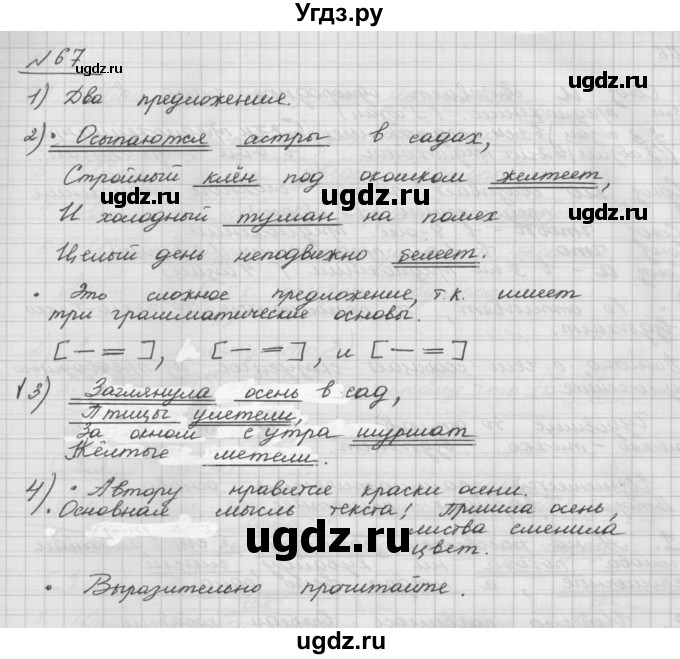 Угдз.ру
№67
ugdz.ru
ugdz.ru
ugdz.ru
1) Два предложения.
2) • Осыпаются астры в садах,
Стройный клён под окошком желтеет,
ugdz.ru
ugdz.ru
И холодный туман на полях
Целый день неподвижно белеет.
• Это сложное предложение, т.к. имеет
три грамматические основы.
ugdz.ru
[— =], [— =], и [— =]
3) Заглянула осень в сад,
Птицы улетели,
За окном с утра шуршат
Жёлтые метели.
ugdz.ru
4) • Автору нравятся краски осени.
• Основная мысль текста: Пришла осень,
листва сменила
цвет.
ugdz.ru
ugdz.ru
• Выразительно прочитайте.
ugdz.ru
ugdz.ru
Угдз.ру